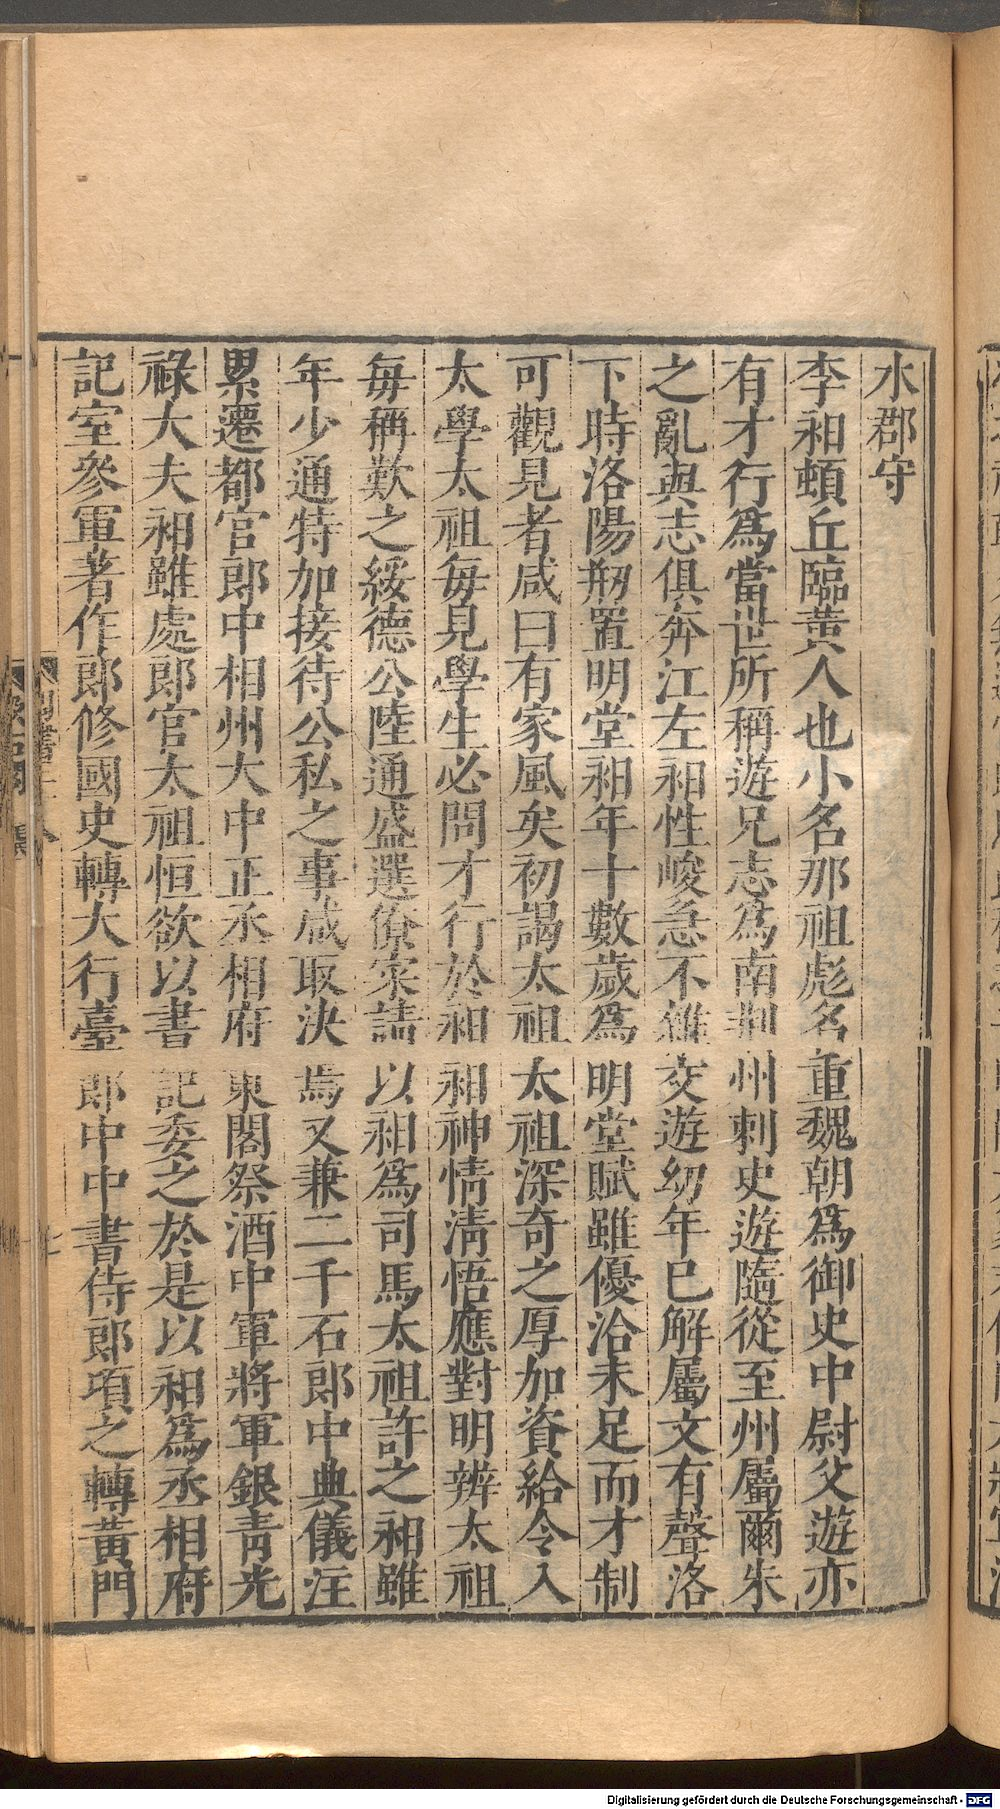 水郡守
李昶頓丘臨黃人也小名那祖彪名重魏朝爲御史中尉父遊亦
有才行爲當世所稱遊兄志爲南荆州刺史遊隨從至州屬爾朱
之亂與志俱奔江左昶性峻急不雜交遊幼年已解屬文有聲洛
下時洛陽剏置明堂昶年十數歲爲明堂賦雖優洽未足而才制
可觀見者咸曰有家風矣初謁太祖太祖深奇之厚加資給令入
太學太祖每見學生必問才行於昶昶神情淸悟應對明辨太祖
每稱歎之綏德公陸通盛選僚寀請以昶爲司馬太祖許之昶雖
年少通特加接待公私之事咸取決焉又兼二千石郎中典儀注
累遷都官郎中相州大中正丞相府東閤祭酒中軍將軍銀靑光
祿大夫昶雖處郎官太祖恒欲以書記委之於是以昶爲丞相府
記室參軍著作郎修國史轉大行臺郎中中書侍郎項之轉黃門
Digitalisierung gefördert durch die Deutsche Forschungsgemeinschaft - DFG